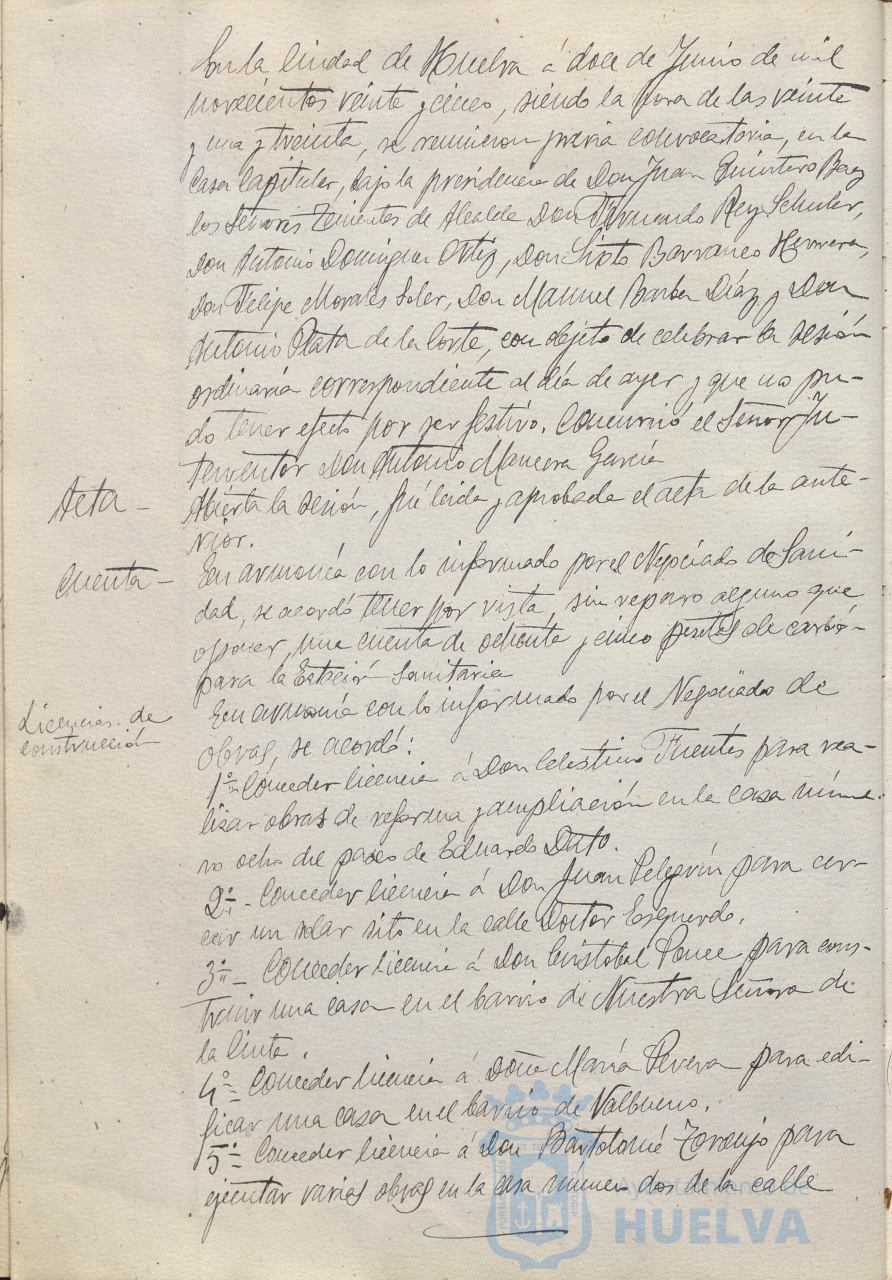 En la Ciudad de Huelva á doce de Junio de mil
novecientos veinte y cinco, siendo la hora de las veinte
y una y treinta, se reunieron previa convocatoria, en la
Casa Capitular, bajo la presidencia de Don Juan Quintero Baez
los Señores Tenientes de Alcalde Don Fernando Rey Schuler,
Don Antonio Dominguez Ortiz, Don Sixto Barranco Herrera,
Don Felipe Morales Soler, Don Manuel Barba Díaz y Don
Antonio Plata de la Corte, con objeto de celebrar la sesión
ordinaria correspondiente al día de ayer y que no pu-
do tener efecto por ser festivo. Concurrió el Señor In-
terventor Don Antonio Mancera García
Acta -
Abierta la sesión, fué leida y aprobada el acta de la ante-
rior.
Cuenta -
En armonía con lo informado por el Negociado de Sani-
dad, se acordó tener por vista, sin reparo alguno que
oponer, una cuenta de ochenta y cinco pesetas de carbón
para la Estación Sanitaria
Licencias de
construcción
En armonía con lo informado por el Negociado de
obras, se acordó:
1º= Conceder licencia á Don Celestino Fuentes para rea-
lizar obras de reforma y ampliación en la casa núme-
ro ocho del paseo de Eduardo Dato.
2º- Conceder licencia á Don Juan Pelegrín para cer-
car un solar sito en la calle Doctor Esquerdo.
3º- Conceder licencia á Don Cristobal Ponce para cons-
truir una casa en el barrio de Nuestra Señora de
la Cinta.
4º= Conceder licencia á Doña María Perera para edi-
ficar una casa en el barrio de Valbueno.
5º= Conceder licencia á Don Bartolomé Toronjo para
ejecutar varias obras en la casa numero dos de la calle
Ayuntamiento de
HUELVA